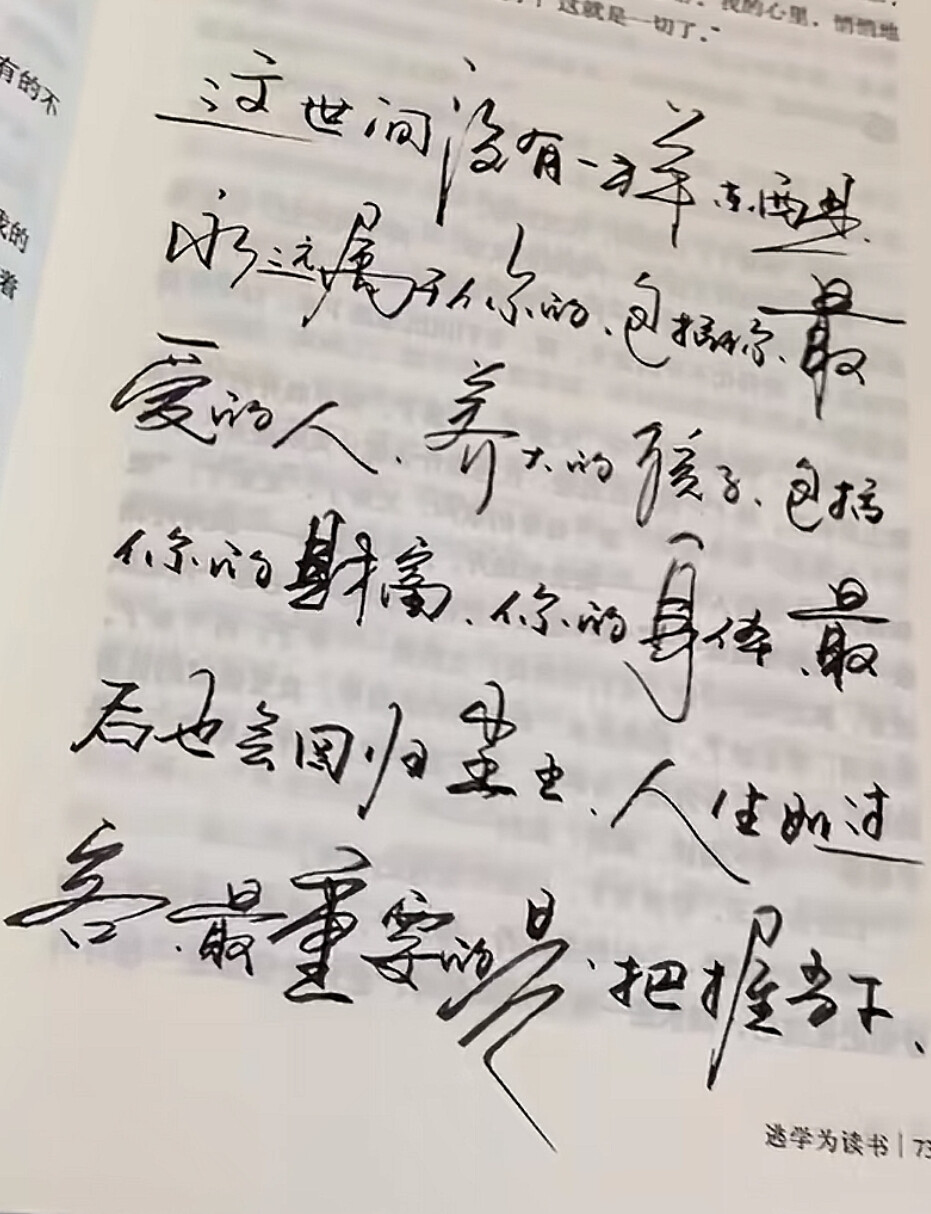 我的心里，悄悄地
这就是一切了。”
有的不
我的
着
这世间没有一样东西是
永远属于你的、包括你最
爱的人、养大的孩子、包括
你的财富、你的身体、最
后也会回归尘土、人生如过
客、最重要的是、把握当下、
逃学为读书 | 73